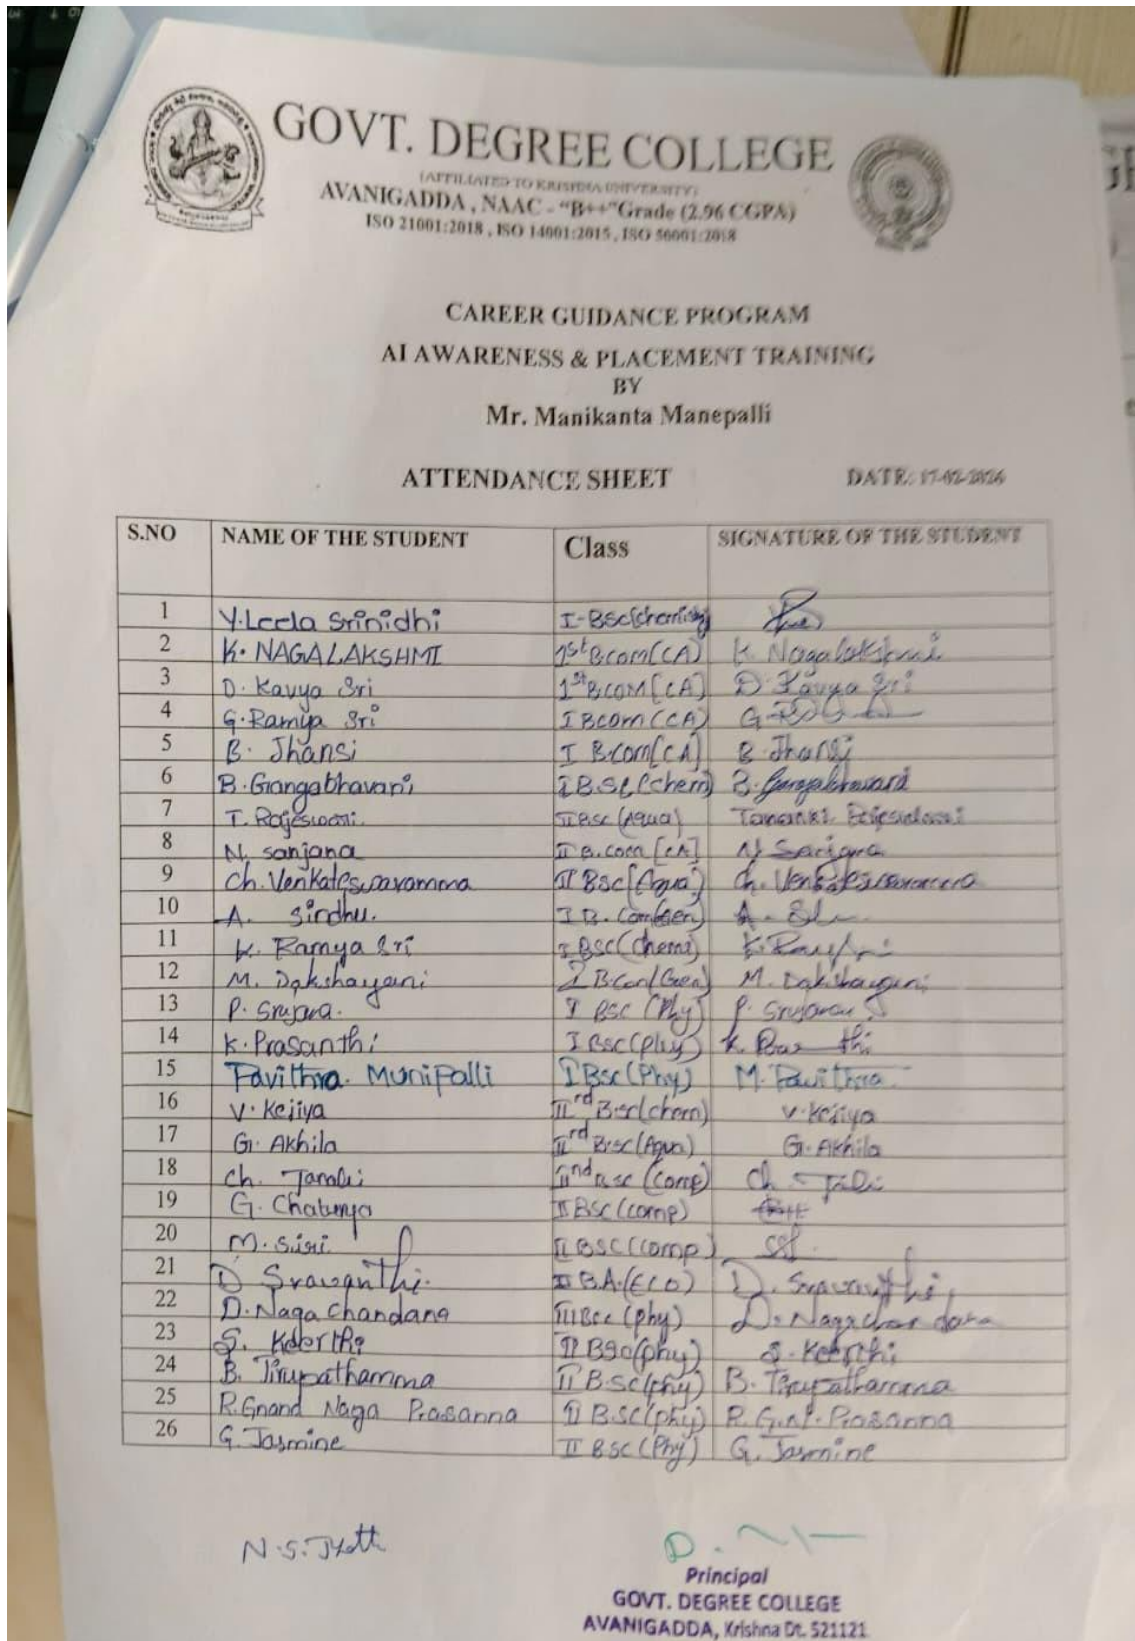 GOVT. DEGREE COLLEGE
(AFFILIATED TO KRISHNA UNIVERSITY)
AVANIGADDA , NAAC - "B++"Grade (2.96 CGPA)
ISO 21001:2018 , ISO 14001:2015 , ISO 50001:2018
CAREER GUIDANCE PROGRAM
AI AWARENESS & PLACEMENT TRAINING
BY
Mr. Manikanta Manepalli
ATTENDANCE SHEET DATE: 17-02-2026
S.NO NAME OF THE STUDENT Class SIGNATURE OF THE STUDENT
1 Y.Leela Srinidhi I-BSc(chemistry)
2 K. NAGALAKSHMI 1st Bcom(CA) K. Nagalakshmi
3 D. Kavya Sri 1st BCOM[CA] D. Kavya Sri
4 G.Ramya Sri I BCOM (CA) G.
5 B. Jhansi I B.com[CA] B. Jhansi
6 B.Gangabhavani I B.Sc (chem) B. Gangabhavani
7 T. Rajeswari II BSc (Aqua) Rajeswari
8 N. sanjana II B.com [CA] N Sanjana
9 Ch.Venkateswaramma II BSc(Aqua) Ch. Venkateswaramma
10 A. Sindhu. I B. Com(Gen) A.
11 K. Ramya Sri I BSc(Chemi) K.
12 M. Dakshayani I B.Com(Gen) M. Dakshayani
13 P. Srujana. I BSC (Phy) P. Srujana
14 K. Prasanthi I BSC(phy) K.
15 Pavithra. Munipalli I BSc (Phy) M. Pavithra
16 V. Kejiya II rd B.sc(chem) V. Kejiya
17 G. Akhila II rd B.sc(Aqua) G. Akhila
18 Ch. II nd B.sc (Comp) Ch.
19 G. Chatunya II BSc (comp)
20 M. Siri II BSC (Comp)
21 D Sravanthi. II B.A.(ECO) D. Sravanthi
22 D. Naga Chandana III BSc (phy) D. Nagachandana
23 S. Keerthi II BSc(phy) S. Keerthi
24 B. Tirupathamma II B.Sc(phy) B. Tirupathamma
25 R.Gnand Naga Prasanna II B.SC(phy) R. G.N. Prasanna
26 G. Jasmine II BSC (Phy) G. Jasmine
N.S.
Principal
GOVT. DEGREE COLLEGE
AVANIGADDA, Krishna Dt. 521121